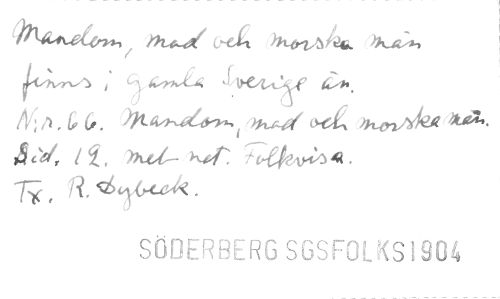 Mandom, mod och morska män
finns i gamla Sverige än.
N:r. 66. Mandom, mod och morska män.
Sid. 12. met not. Folkvisa.
Tx. R. Dybeck.
SÖDERBERG SGSFOLKS1904